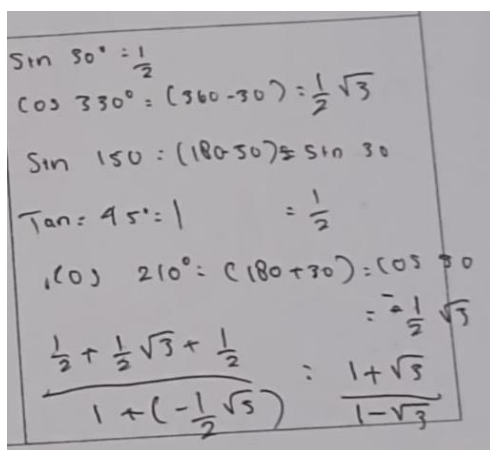 Sin 30° = 1/2
Cos 330° = (360-30) = 1/2 √3
Sin 150 = (180-30) = Sin 30
Tan = 45° = 1 = 1/2
Cos 210° = (180+30) = cos 30
= -1/2 √3
(1/2 + 1/2 √3 + 1/2) / (1 + (-1/2 √3)) = (1+√3) / (1-√3)